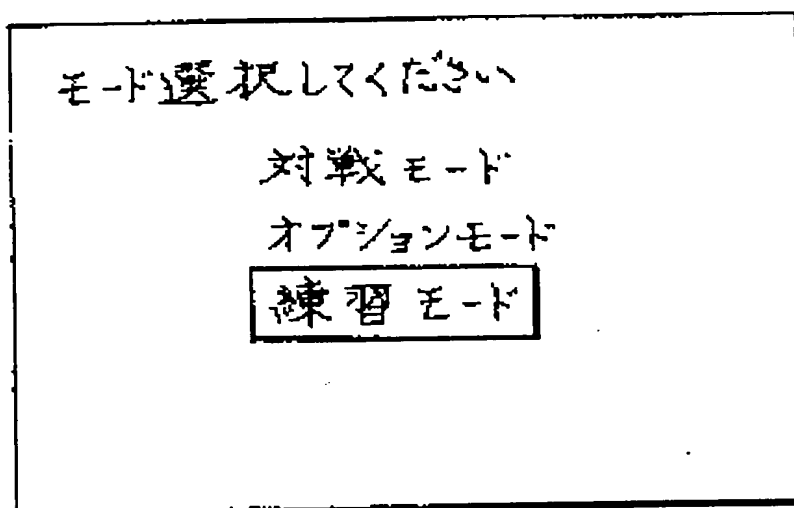 モード選択してください
対戦モード
オプションモード
練習モード